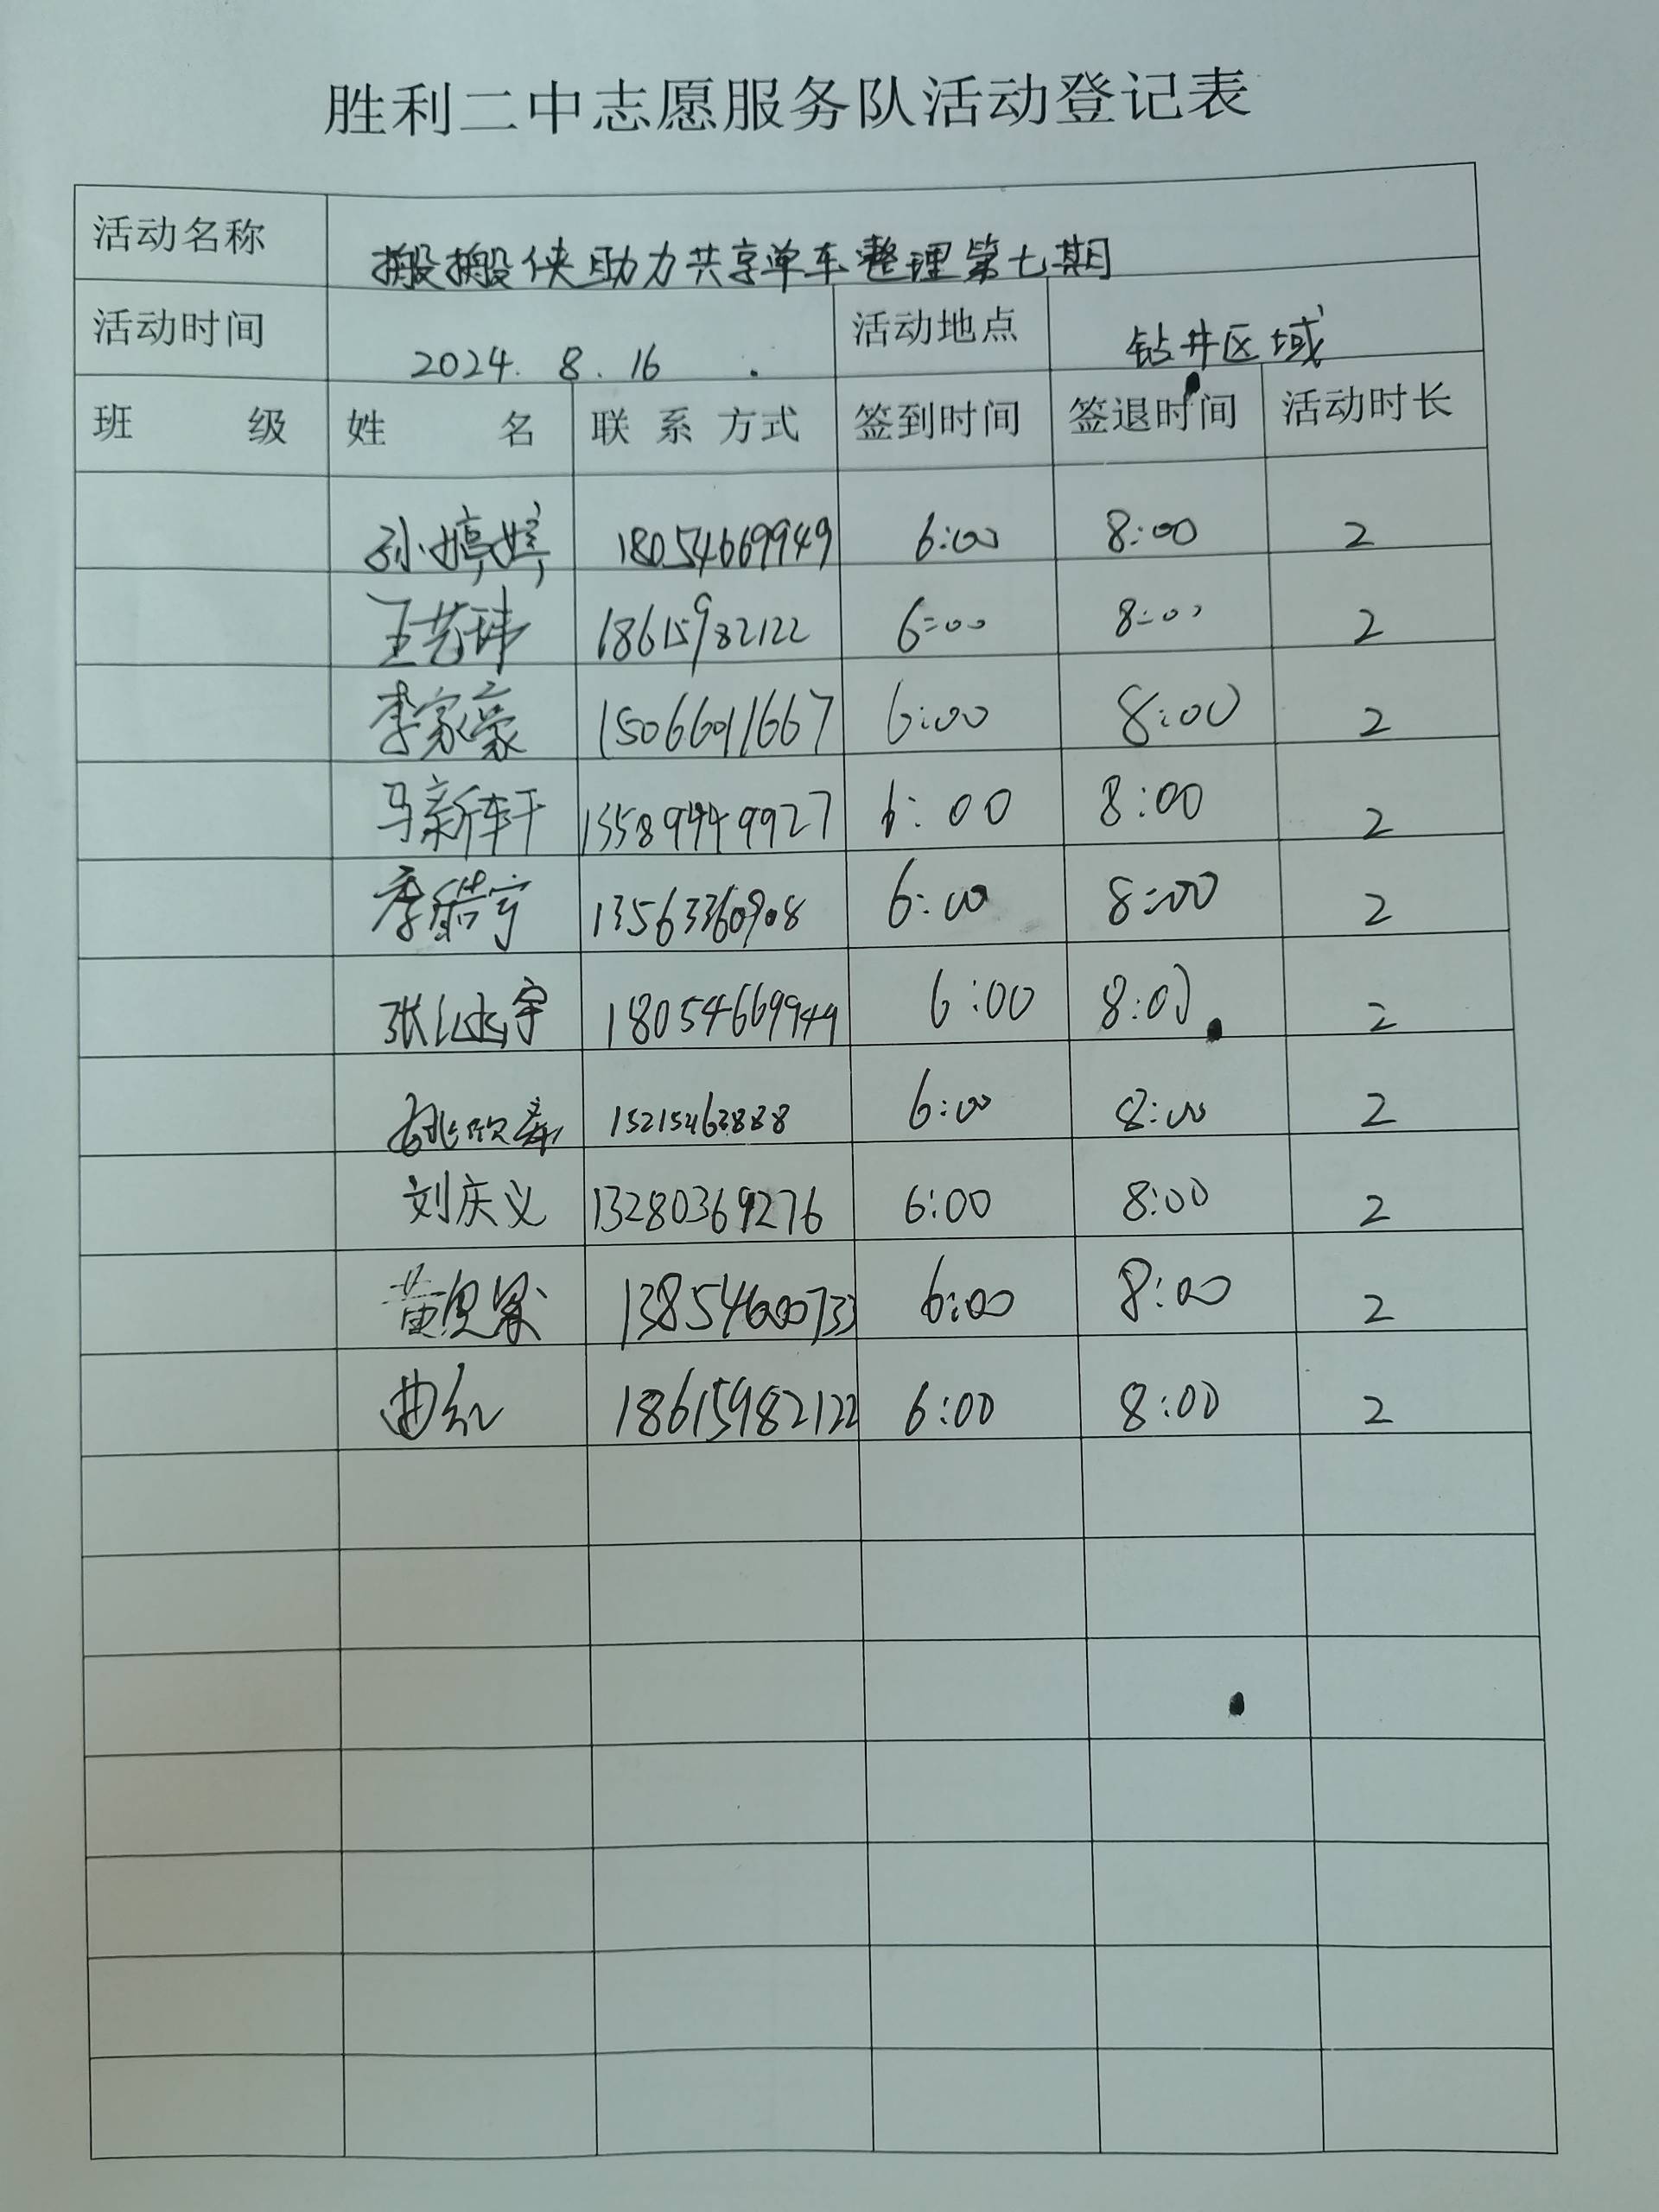 胜利二中志愿服务队活动登记表
活动名称 搬搬侠助力共享单车整理第七期
活动时间 2024.8.16. 活动地点 钻井区域
班 级 姓 名 联系方式 签到时间 签退时间 活动时长
孙婷婷 18054669949 6:00 8:00 2
王艺玮 18615982122 6:00 8:00 2
李家豪 15066011667 6:00 8:00 2
马新轩 13589449927 6:00 8:00 2
李皓宇 13563360908 6:00 8:00 2
张 宇 18054669949 6:00 8:00 2
姚欣 15215463888 6:00 8:00 2
刘庆义 13280369276 6:00 8:00 2
黄 13854600733 6:00 8:00 2
曲红 18615982122 6:00 8:00 2